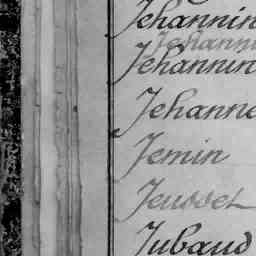 Jehannin
Jehanni
Jehannin
Jehanne
Jemin
Jeusset
Jubaud